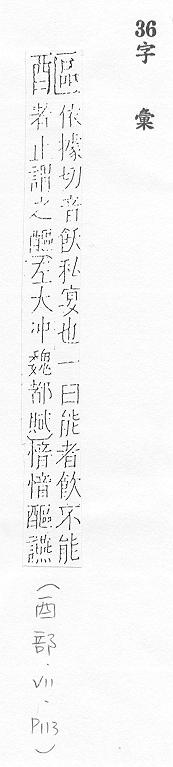 36字彙
醧
依據切音飫私宴也一曰能者飲不能
者止謂之醧左太冲魏都賦愔愔醧讌
(酉部·VII·P113)